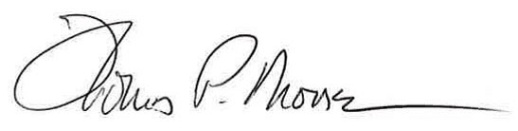 Thomas P. Moore